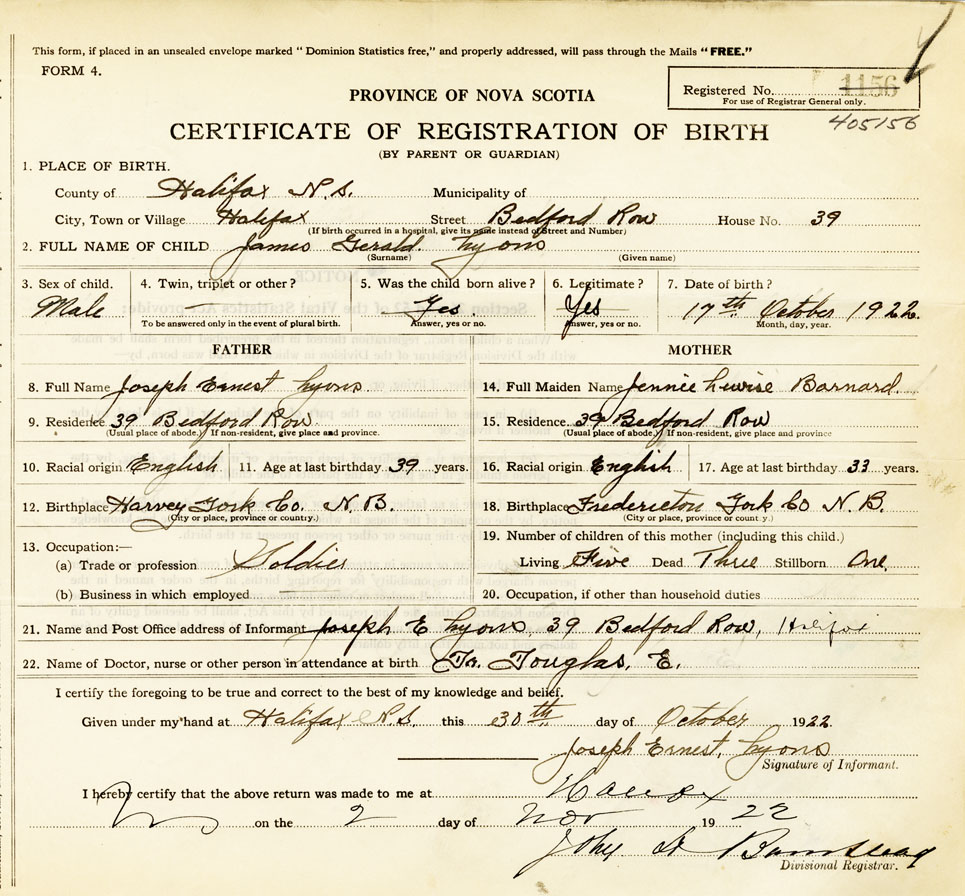 This form, if placed in an unsealed envelope marked "Dominion Statistics free," and properly addressed, will pass through the Mails "FREE."
FORM 4.
Registered No. 1156
For use of Registrar General only.
PROVINCE OF NOVA SCOTIA
405156
CERTIFICATE OF REGISTRATION OF BIRTH
(BY PARENT OR GUARDIAN)
1. PLACE OF BIRTH.
County of Halifax N.S. Municipality of
City, Town or Village Halifax Street Bedford Row House No. 39
(If birth occurred in a hospital, give its name instead of Street and Number)
2. FULL NAME OF CHILD James Gerald Lyons
(Surname) (Given name)
3. Sex of child. 4. Twin, triplet or other? 5. Was the child born alive? 6. Legitimate? 7. Date of birth?
Male — Yes. Yes 17th October 1922.
To be answered only in the event of plural birth. Answer, yes or no. Answer, yes or no. Month, day, year.
FATHER MOTHER
8. Full Name Joseph Ernest Lyons 14. Full Maiden Name Jennie Lewise Barnard.
9. Residence 39 Bedford Row. 15. Residence. 39 Bedford Row
(Usual place of abode.) If non-resident, give place and province. (Usual place of abode.) If non-resident, give place and province
10. Racial origin English 11. Age at last birthday 39 years. 16. Racial origin English 17. Age at last birthday 33 years.
12. Birthplace Harvey York Co. N.B. 18. Birthplace Fredericton York Co N.B.
(City or place, province or country.) (City or place, province or county.)
13. Occupation:— 19. Number of children of this mother (including this child.)
(a) Trade or profession Soldier Living Five Dead Three Stillborn One.
(b) Business in which employed 20. Occupation, if other than household duties
21. Name and Post Office address of Informant Joseph E Lyons, 39 Bedford Row, Halifax
22. Name of Doctor, nurse or other person in attendance at birth Dr. Douglas, E.
I certify the foregoing to be true and correct to the best of my knowledge and belief.
Given under my hand at Halifax N.S. this 30th day of October 1922
Joseph Ernest, Lyons
Signature of Informant.
I hereby certify that the above return was made to me at Halifax
on the 2 day of Nov 1922
John Barnstead
Divisional Registrar.